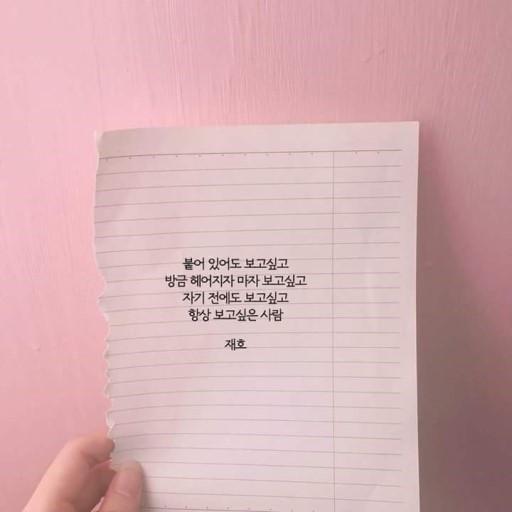 붙어 있어도 보고싶고
방금 헤어지자 마자 보고싶고
자기 전에도 보고싶고
항상 보고싶은 사람
재호